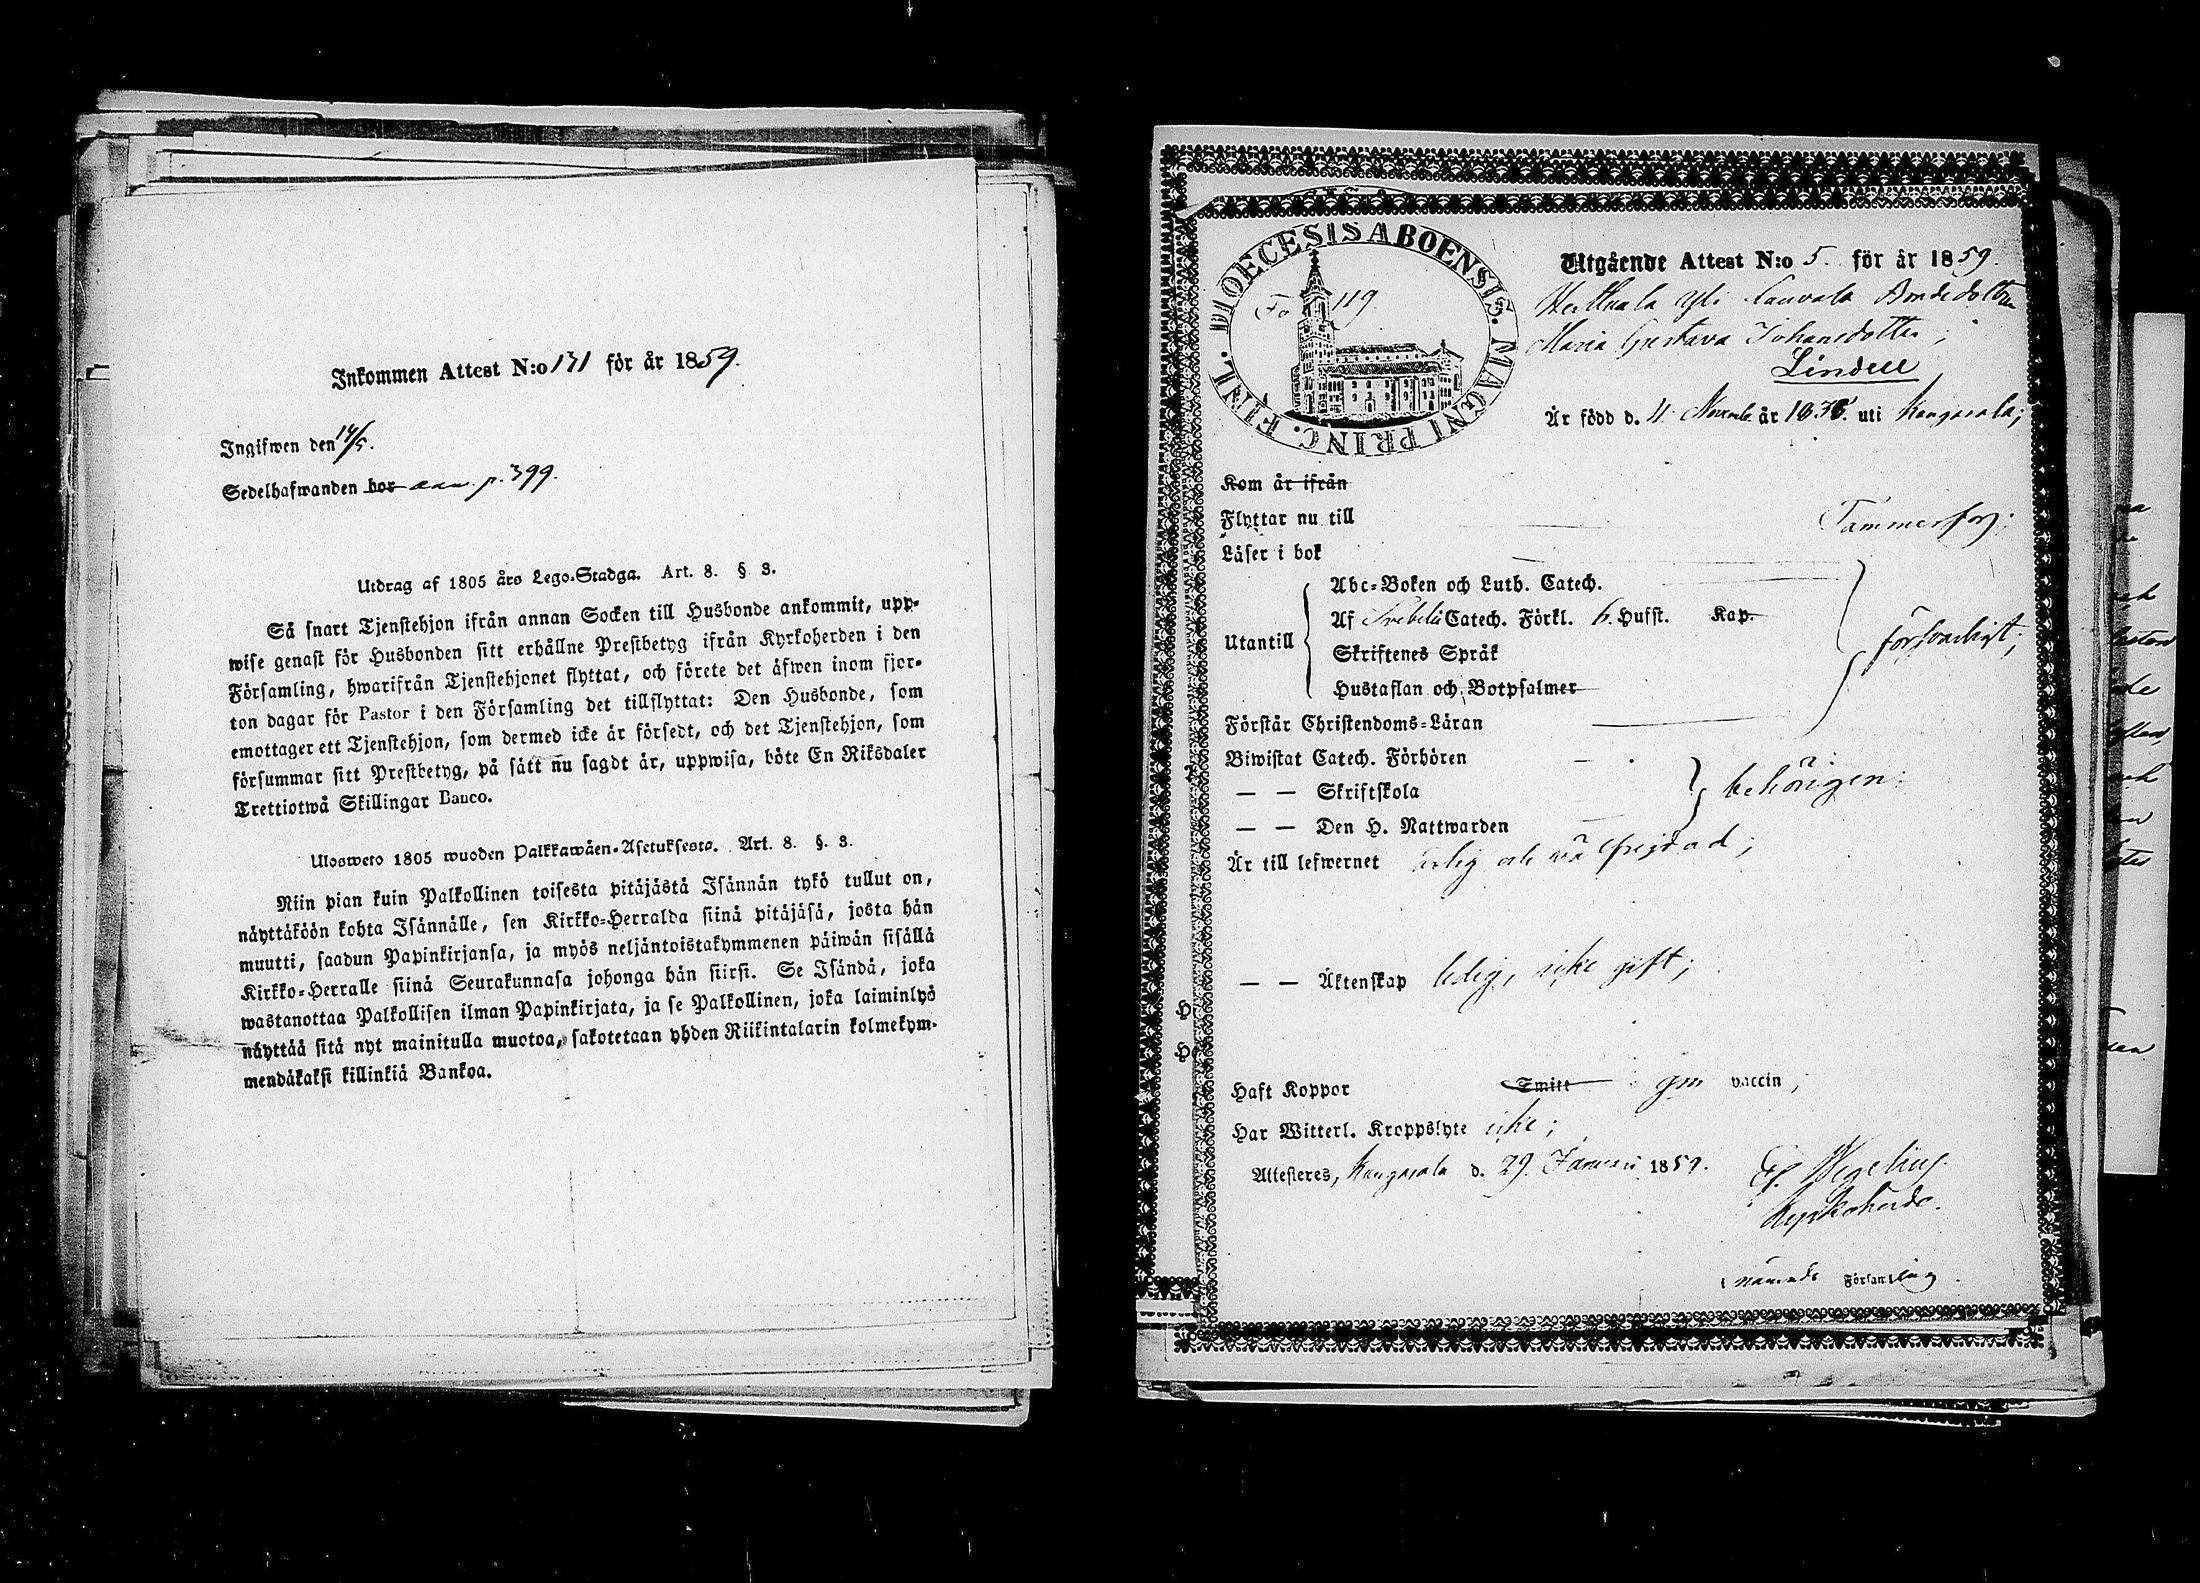 Inkommen Attest N:o 131 för år 1859.
Ingifwen den 14/5.
Sedelhafwanden bor ann. p. 399.
Utdrag af 1805 års Lego-Stadga. Art. 8. § 3.
Så snart Tjenstehjon ifrån annan Socken till Husbonde ankommit, upp-
wise genast för Husbonden sitt erhållne Prestbetyg ifrån Kyrkoherden i den
Församling, hwarifrån Tjenstehjonet flyttat, och förete det äfwen inom fjor-
ton dagar för Pastor i den Församling det tillflyttat: Den Husbonde, som
emottager ett Tjenstehjon, som dermed icke är försedt, och det Tjenstehjon, som
försummar sitt Prestbetyg, på sätt nu sagdt är, uppwisa, böte En Riksdaler
Trettiotwå Skillingar Banco.
Ulosweto 1805 wuoden Palkkawäen-Asetuksesta. Art. 8. §. 3.
Niin pian kuin Palkollinen toisesta pitäjästä Isännän tykö tullut on,
näyttäköön kohta Isännälle, sen Kirkko-Herralda siinä pitäjäsä, josta hän
muutti, saadun Papinkirjansa, ja myös neljäntoistakymmenen päiwän sisällä
Kirkko-Herralle siinä Seurakunnasa johonga hän siirsi. Se Isändä, joka
wastanottaa Palkollisen ilman Papinkirjata, ja se Palkollinen, joka laiminlyö
näyttää sitä nyt mainitulla muotoa, sakotetaan yhden Riikintalarin kolmekym-
mendäkaksi killinkiä Bankoa.
FINL. DIOECESIS ABOENSIS. MAGNI PRINC.
Fo 119.
Utgående Attest N:o 5. för år 1859.
Yli Bondedottren
Maria Gustava Johansdotter;
Lindell
Är född d. 4 November år 1838. uti Kangasala;
Kom år ifrån
Flyttar nu till Tammerfors;
Läser i bok
Abc-Boken och Luth. Catech.
Utantill
Af Svebelii Catech. Förkl. 6. Hufst. Kap.
Skriftenes Språk
Hustaflan och Botpsalmer
försvarligt;
Förstår Christendoms-Läran
Biwistat Catech. Förhören
— — Skriftskola
behörigen;
— — Den H. Nattwarden
Är till lefwernet ärlig och wälfrejdad;
— — Äktenskap ledig, icke gift;
Haft Koppor Smitt gm vaccin;
Har Witterl. Kroppslyte icke;
Attesteres, Kangasala d. 29. Januari 1859.
Wegelius.
Kyrkoherde.
i nämnde Församling.